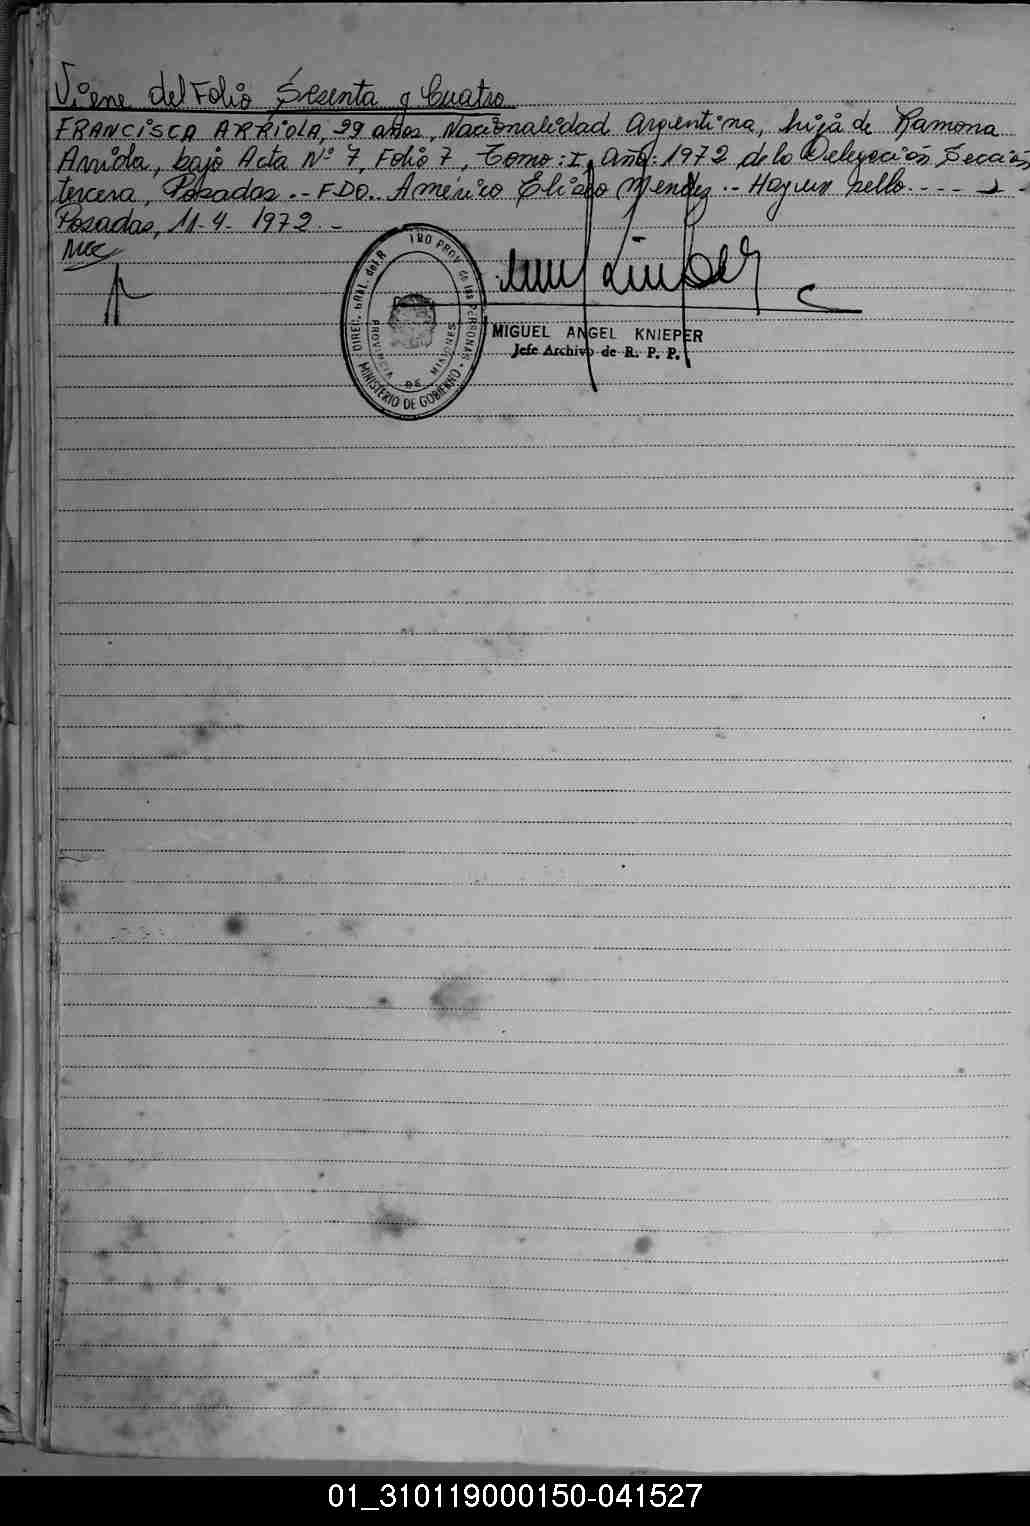 Viene del Folio Sesenta y Cuatro
FRANCISCA ARRIOLA, 29 años, Nacionalidad Argentina, hija de Ramona
Arriola, bajo Acta Nº 7, Folio 7, Tomo: I, Año: 1972 de la Delegación Sección
tercera, Posadas.-- FDO.. Américo Eliseo Mendez.-- Hay un sello.----
Posadas, 11-4-1972.-
DIREC. GRAL. del R
PROV. de las PERSONAS
PROVINCIA DE MISIONES
MINISTERIO DE GOBIERNO
MIGUEL ANGEL KNIEPER
Jefe Archivo de R. P. P.
01_310119000150-041527